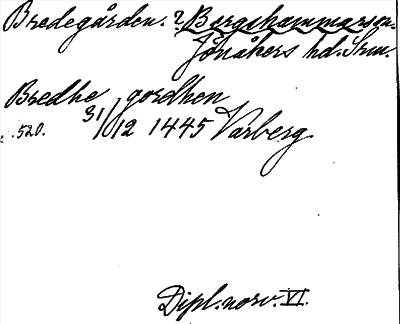 Bredegården. ? Bergshammars sn.
Jönåkers hd. Srm.
Bredhe gordhen
s. 520. 31/12 1445 Varberg
Dipl. norv. VI.